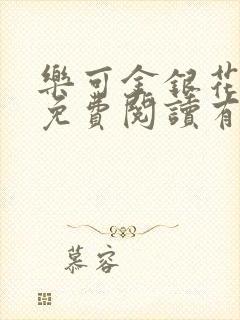 樂可金銀花
免費閱讀有
慕容